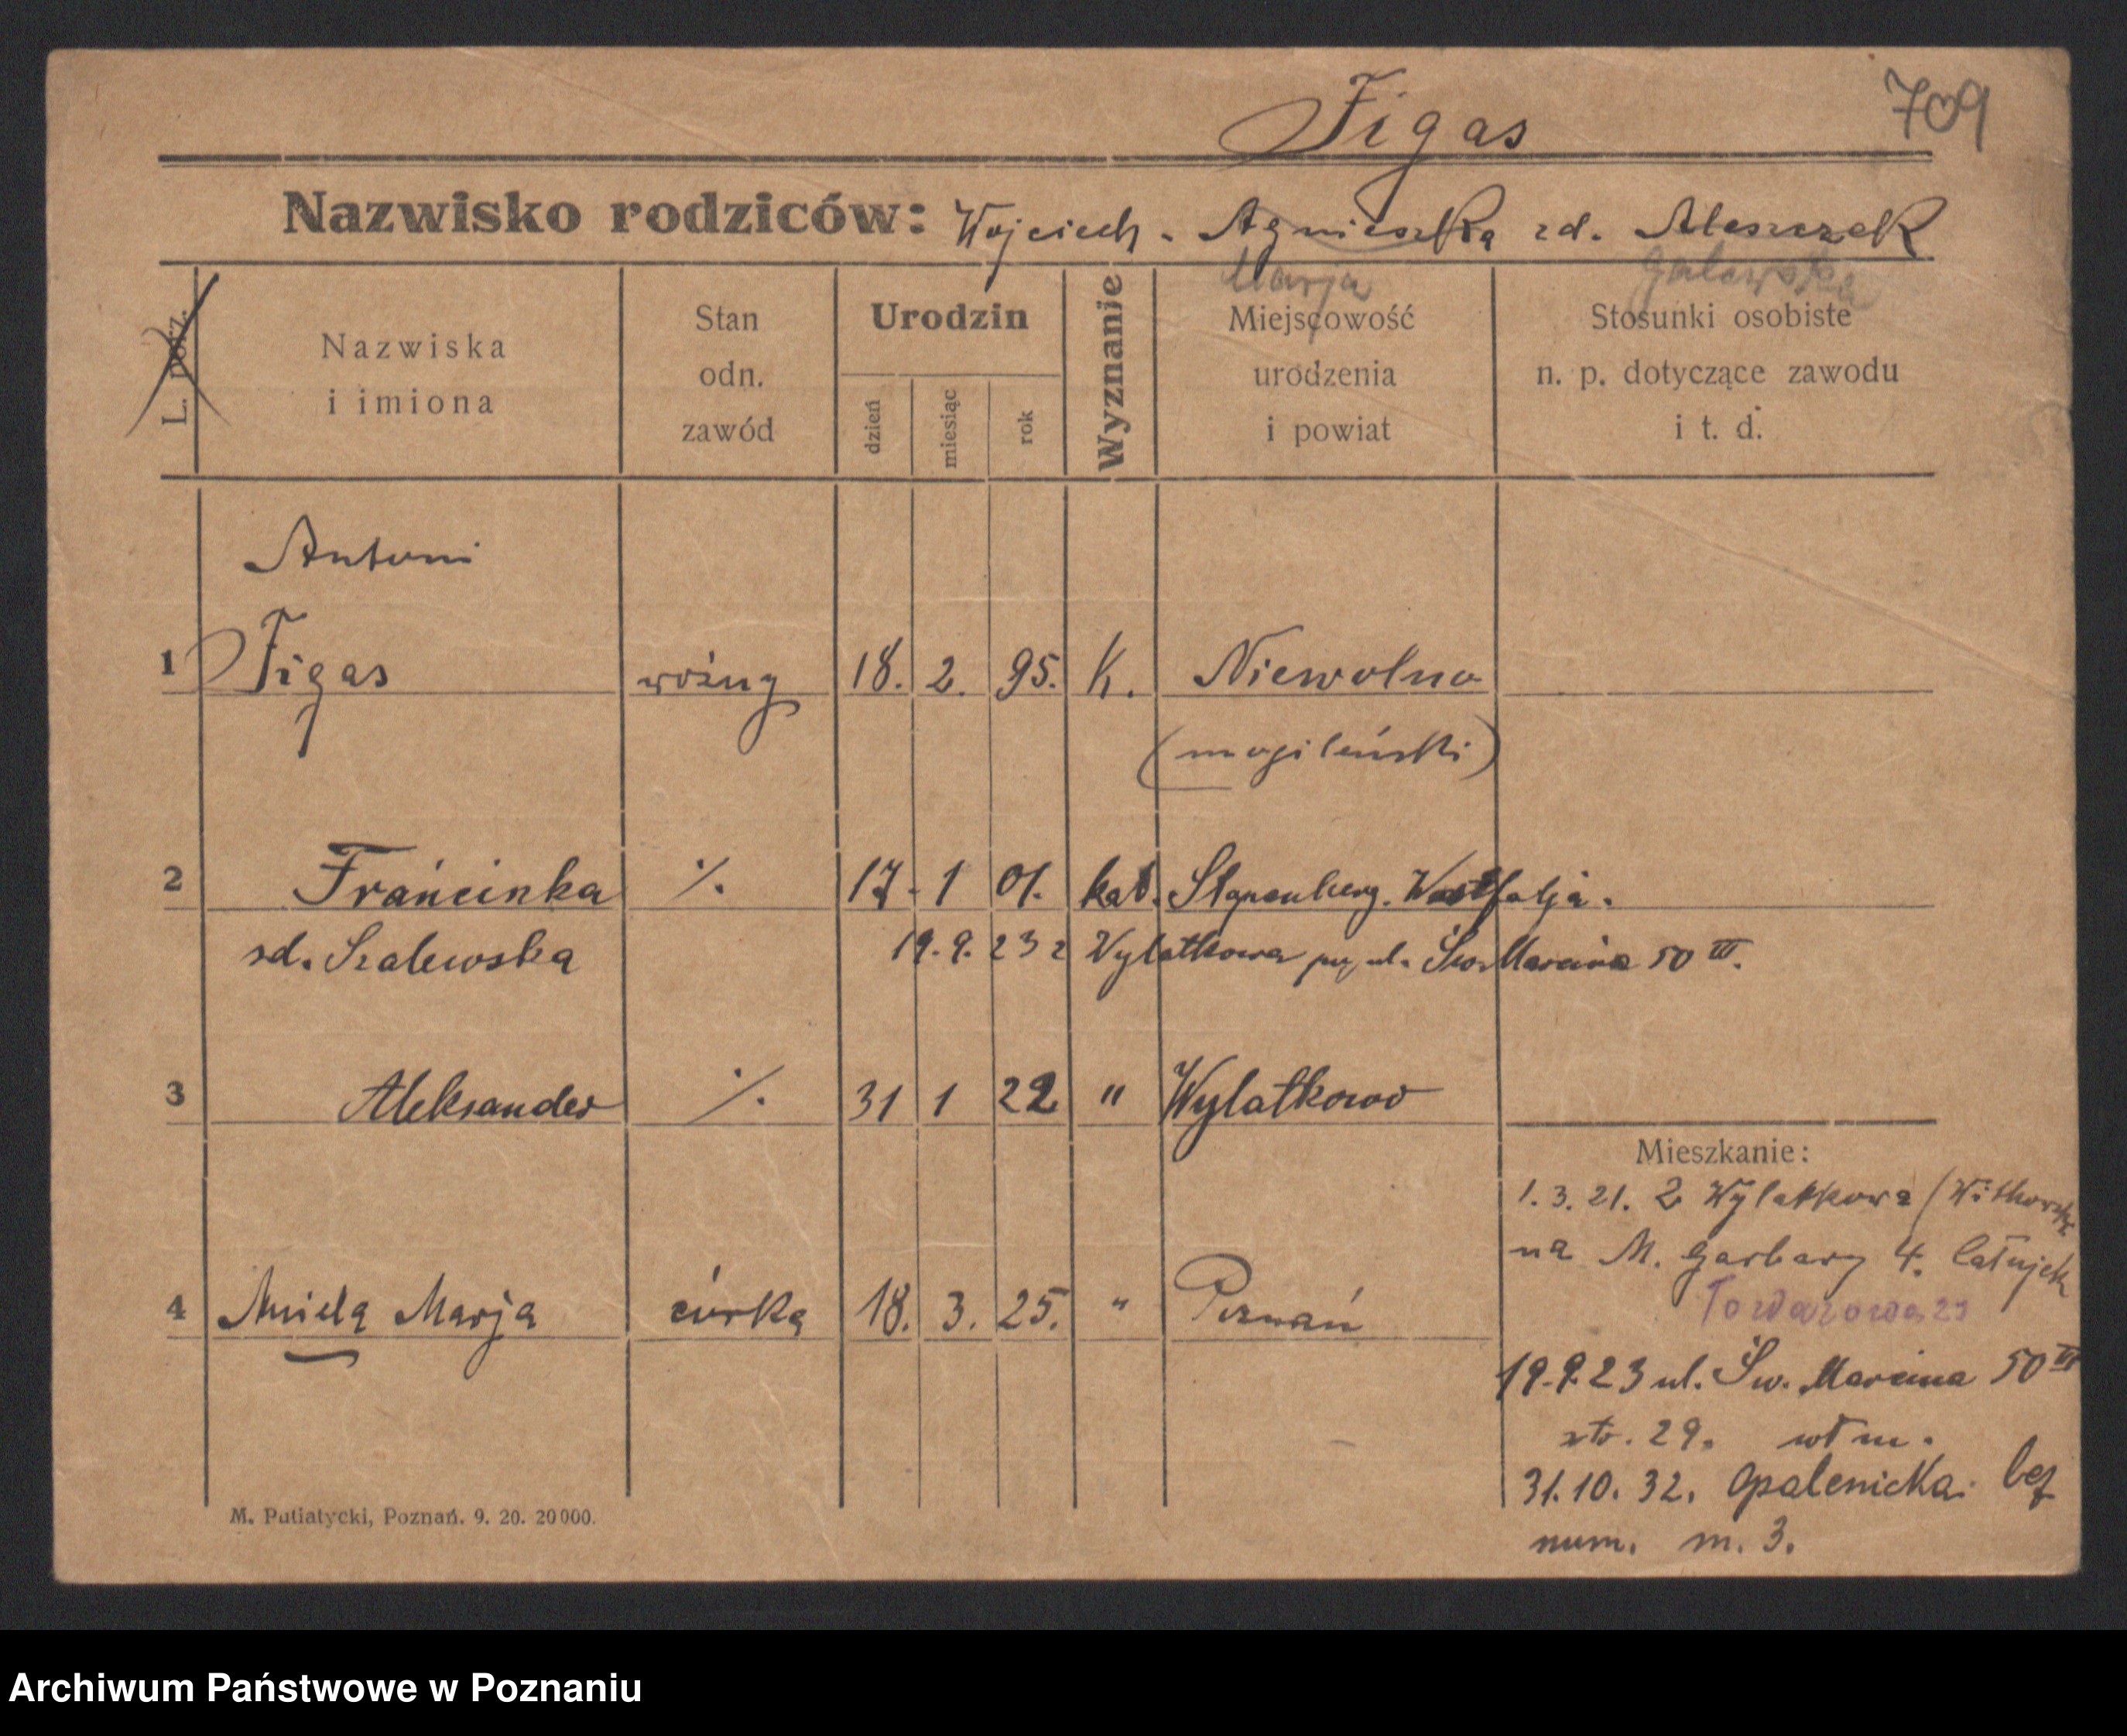 Figas 709
Nazwisko rodziców: Wojciech - Agnieszka zd. Aleszczak
Marja
L. porz.
Nazwiska
i imiona
Stan
odn.
zawód
Urodzin
dzień
miesiąc
rok
Wyznanie
Miejscowość
urodzenia
i powiat
Stosunki osobiste
n. p. dotyczące zawodu
i t. d.
Antoni
1 Figas woźny 18. 2. 95. K. Niewolno
(mogileński)
2 Franćinka ./. 17. 1 01. kat. Westfalja.
zd. Szalewska 19.9.23 z Wylatkowa ul. Św. Marcina 50 III.
3 Aleksander ./. 31 1 22 " Wylatkowo
Mieszkanie:
1.3.21. z Wylatkowa (Witkowski
na M. Garbary 4.
Towarowa 29
4 Aniela Marja córka 18. 3. 25. " Poznań
19.9.23 ul. Św. Marcina 50 III
str. 29. wł m.
31.10.32. Opalenicka bez
num. m. 3.
M. Putiatycki, Poznań. 9. 20. 20000.
Archiwum Państwowe w Poznaniu